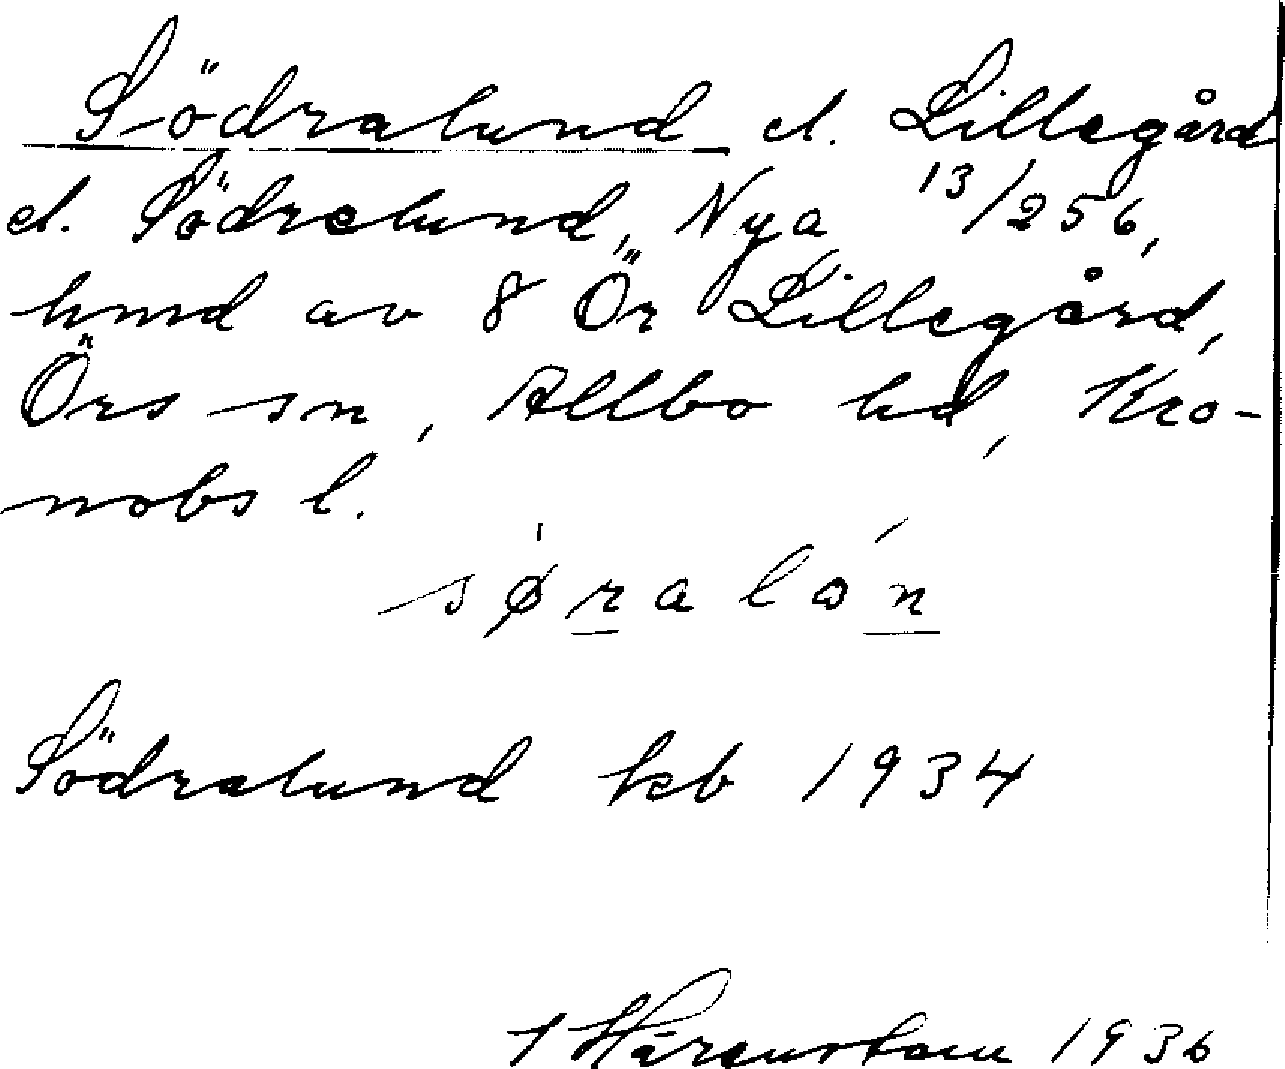 Södralund el. Lillegård
el. Södralund, Nya 13/256,
hmd av 8 Ör Lillegård,
Örs sn, Allbo hd, Kro-
nobs l.
sø̀ralón
Södralund kb 1934
1936